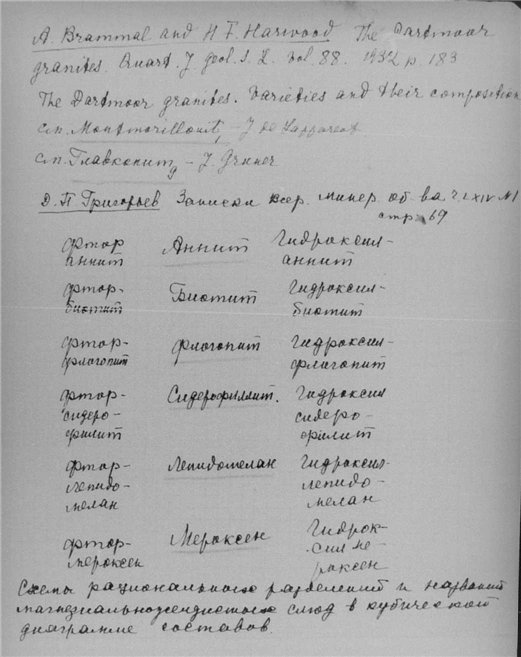 A. Brammal and H F. Harwood The Dartmoor
granites. Quart. J geol. s. L. vol. 88. 1932 p. 183
The Dartmoor granites. Varieties and their composition
см. Montmorillonit, – J de Lapparent
см. Главконит – J. Gruner
Д. П Григорьев Записки всер. минер. об-ва ч. LXIV №1
стр. 69
фтор Аннит Гидроксил-
аннит аннит
фтор- Биотит Гидроксил-
биотит биотит
фтор- флогопит Гидроксил-
флогопит флогопит
фтор- Сидерофиллит. Гидроксил
сидеро- сидеро-
филит филит
фтор- Лепидомелан Гидроксил-
лепидо- лепидо-
мелан мелан
фтор- Мероксен Гидрок-
мероксен сил ме-
роксен
Схемы рационального разделения и названий
магнезиальножелезистых слюд в кубической
диаграмме составов.